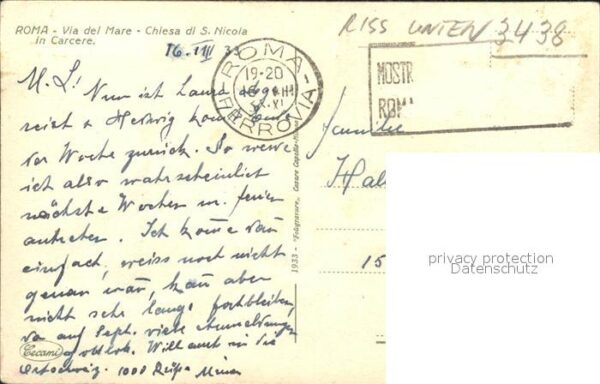 ROMA - Via del Mare - Chiesa di S. Nicola
in Carcere.
RISS UNTEN 3438
16. VIII 33
ROMA
19-20
FERROVIA
MOSTR
ROMA
M. L! Nun ist Laura abge
reist & Hedwig kom Ende
der Woche zurück. So werde
ich also wahrscheinlich
nächste Woche m. ferien
antreten. Ich
einfach, weiss noch nicht
genau wan, kan aber
nicht sehr lange fortbleiben,
da auf Sept. viele Anmeldungen
Will auch in die
Ostschweiz. 1000 Küsse
Familie
Hal
15
1933 - "Fotogravure" Cesare Capello
Cecami
privacy protection
Datenschutz